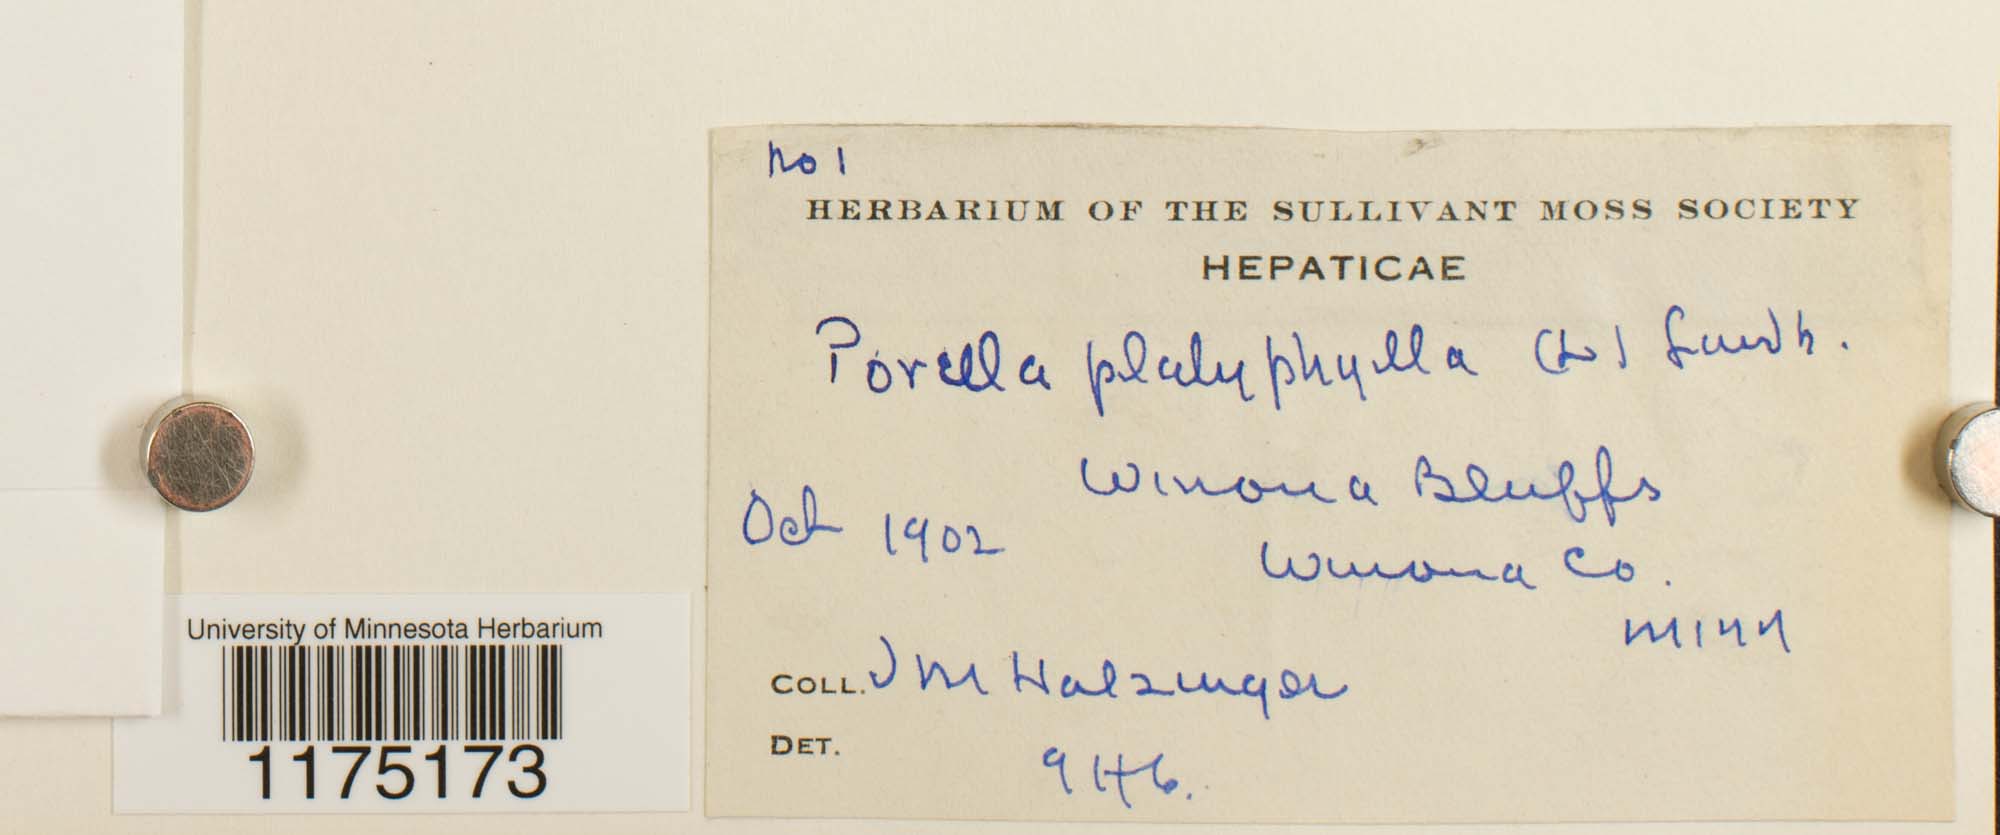 No 1
HERBARIUM OF THE SULLIVANT MOSS SOCIETY
HEPATICAE
Porella platyphylla (L) Lindb.
Winona Bluffs
Oct 1902
Winona Co.
Minn
COLL. J M Holzinger
DET.
University of Minnesota Herbarium
1175173